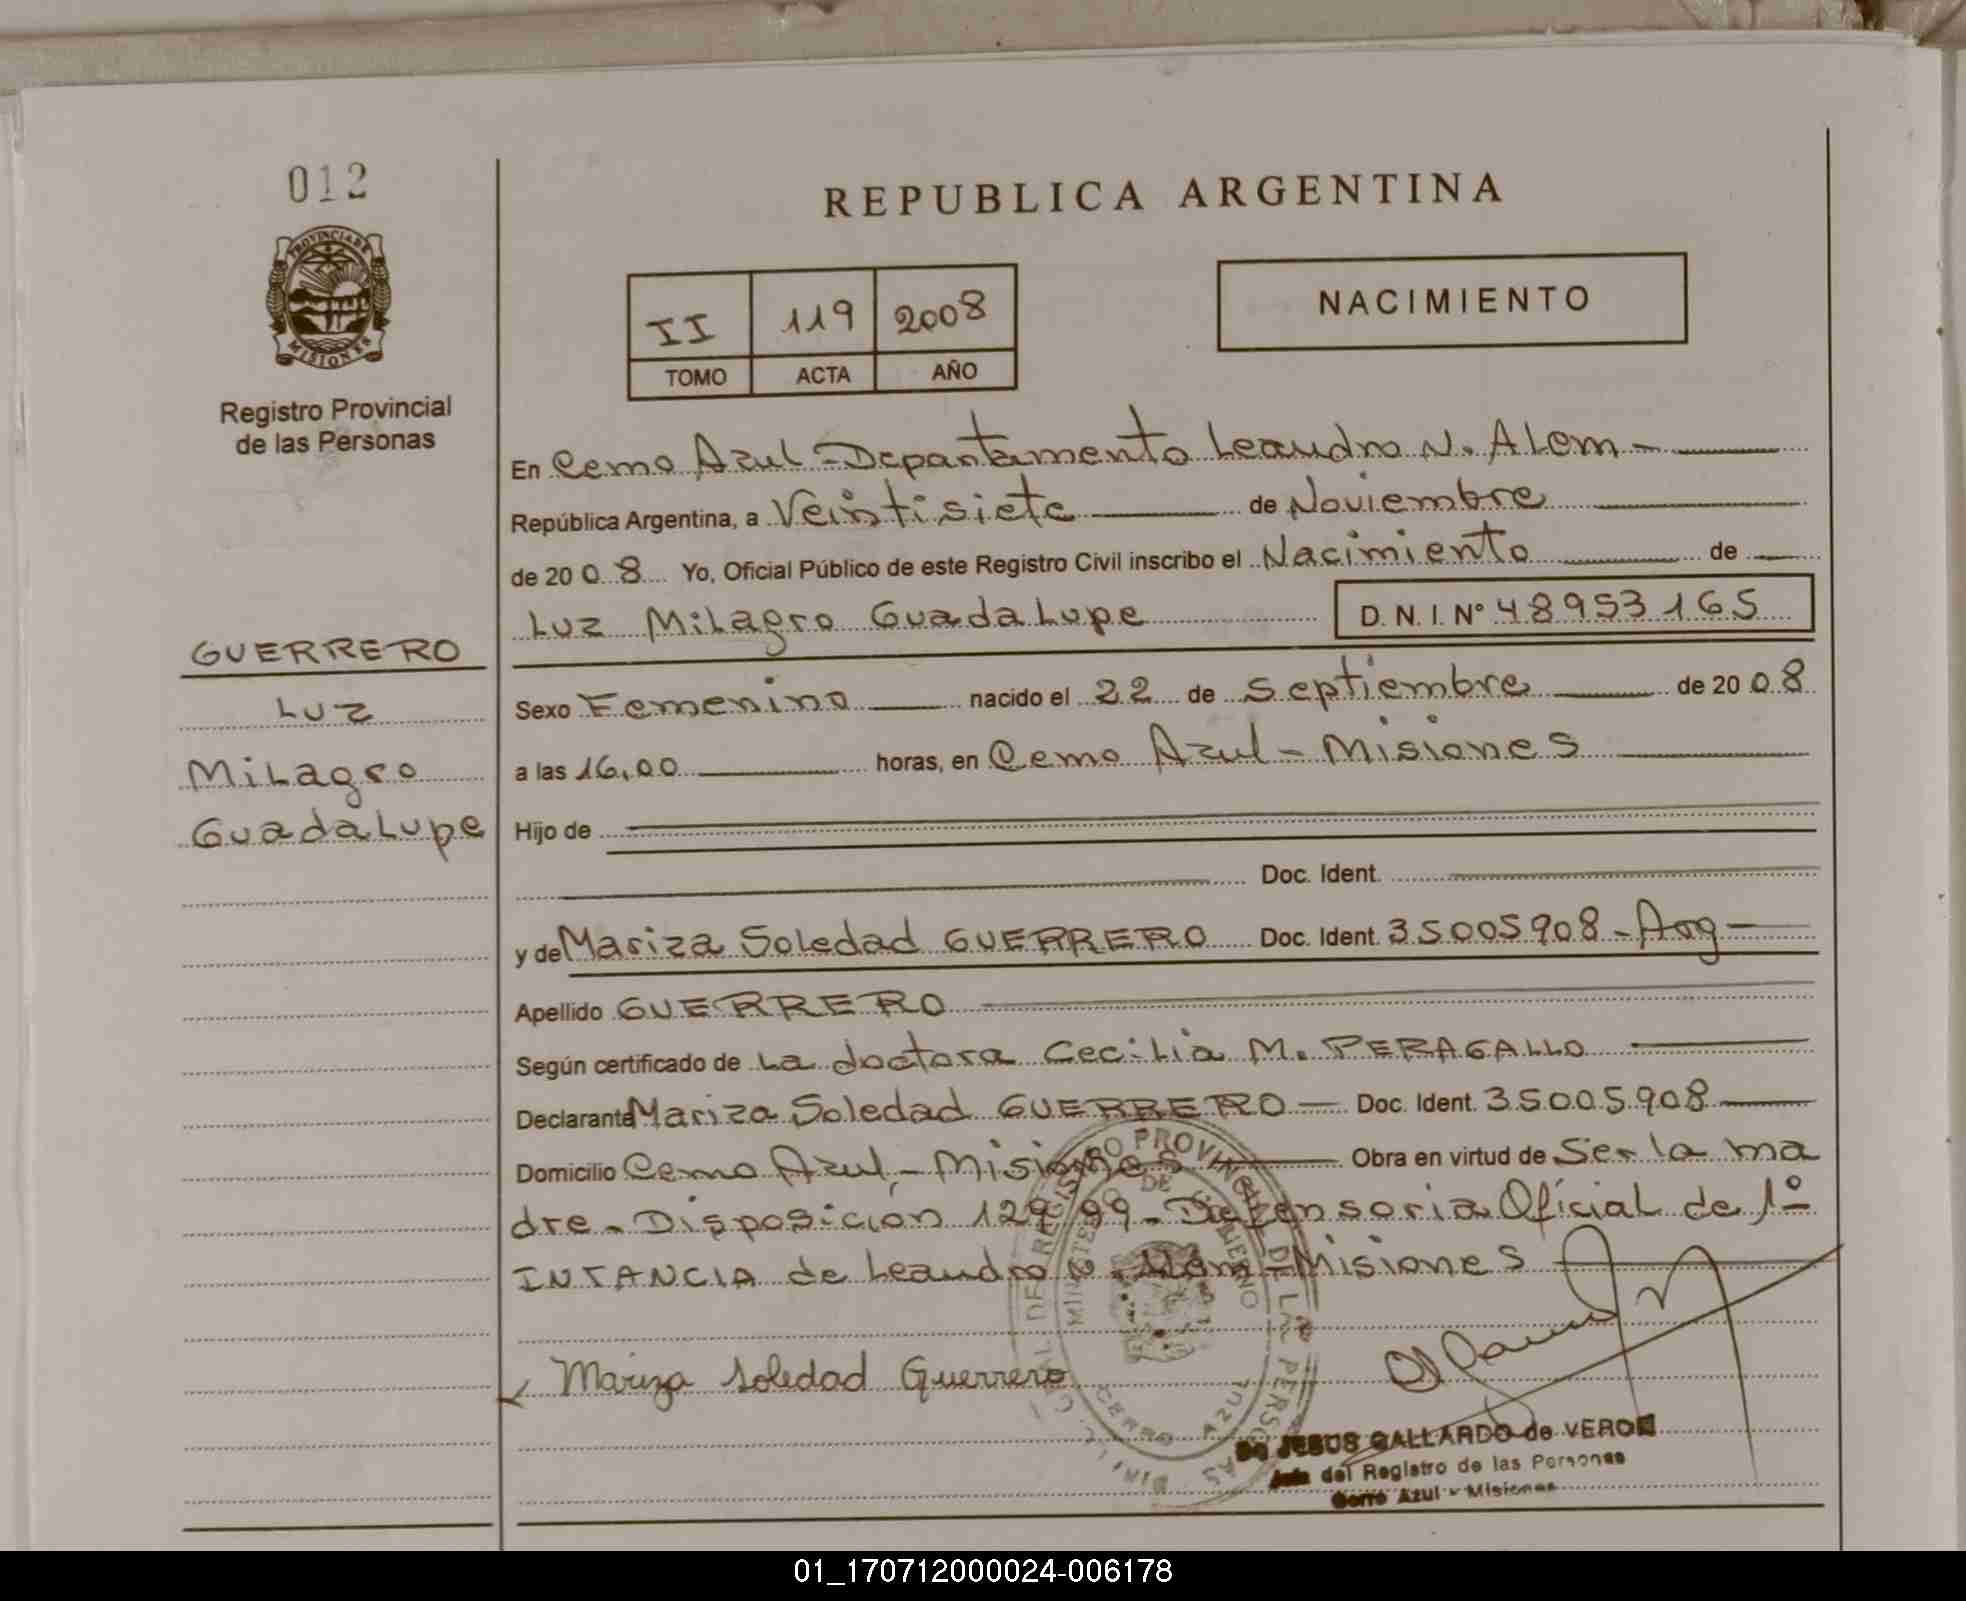 012
REPUBLICA ARGENTINA
PROVINCIA DE
MISIONES
Registro Provincial
de las Personas
II 119 2008
TOMO ACTA AÑO
NACIMIENTO
En Cerro Azul - Departamento Leandro N. Alem -
República Argentina, a Veintisiete de Noviembre
de 2008 Yo, Oficial Público de este Registro Civil inscribo el Nacimiento de
Luz Milagro Guadalupe D.N.I. Nº 48953165
GUERRERO
Luz
Milagro
Guadalupe
Sexo Femenino nacido el 22 de Septiembre de 2008
a las 16,00 horas, en Cerro Azul - Misiones
Hijo de
Doc. Ident.
y de Mariza Soledad GUERRERO Doc. Ident. 35005908 - Arg -
Apellido GUERRERO
Según certificado de La doctora Cecilia M. PERAGALLO
Declarante Mariza Soledad GUERRERO - Doc. Ident. 35005908
Domicilio Cerro Azul - Misiones Obra en virtud de Ser la ma
dre - Disposición 129/99 - Defensoria Oficial de 1º
INTANCIA de Leandro N. Alem - Misiones
Mariza Soledad Guerrero
REGISTRO PROVINCIAL DE LAS PERSONAS
MINISTERIO DE GOBIERNO
CERRO AZUL
JESUS GALLARDO de VERON
Jefe del Registro de las Personas
Cerro Azul - Misiones
01_170712000024-006178